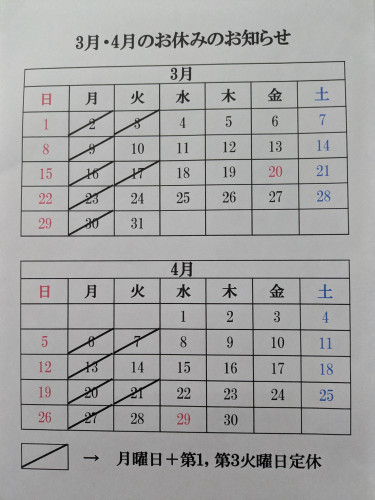 3月・4月のお休みのお知らせ
3月
日 月 火 水 木 金 土
1 2 3 4 5 6 7
8 9 10 11 12 13 14
15 16 17 18 19 20 21
22 23 24 25 26 27 28
29 30 31
4月
日 月 火 水 木 金 土
1 2 3 4
5 6 7 8 9 10 11
12 13 14 15 16 17 18
19 20 21 22 23 24 25
26 27 28 29 30
→ 月曜日＋第1，第3火曜日定休